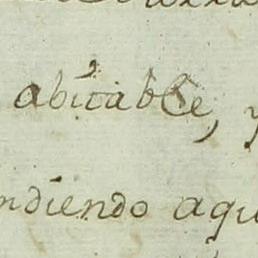 abitable, y
ndiendo aqu